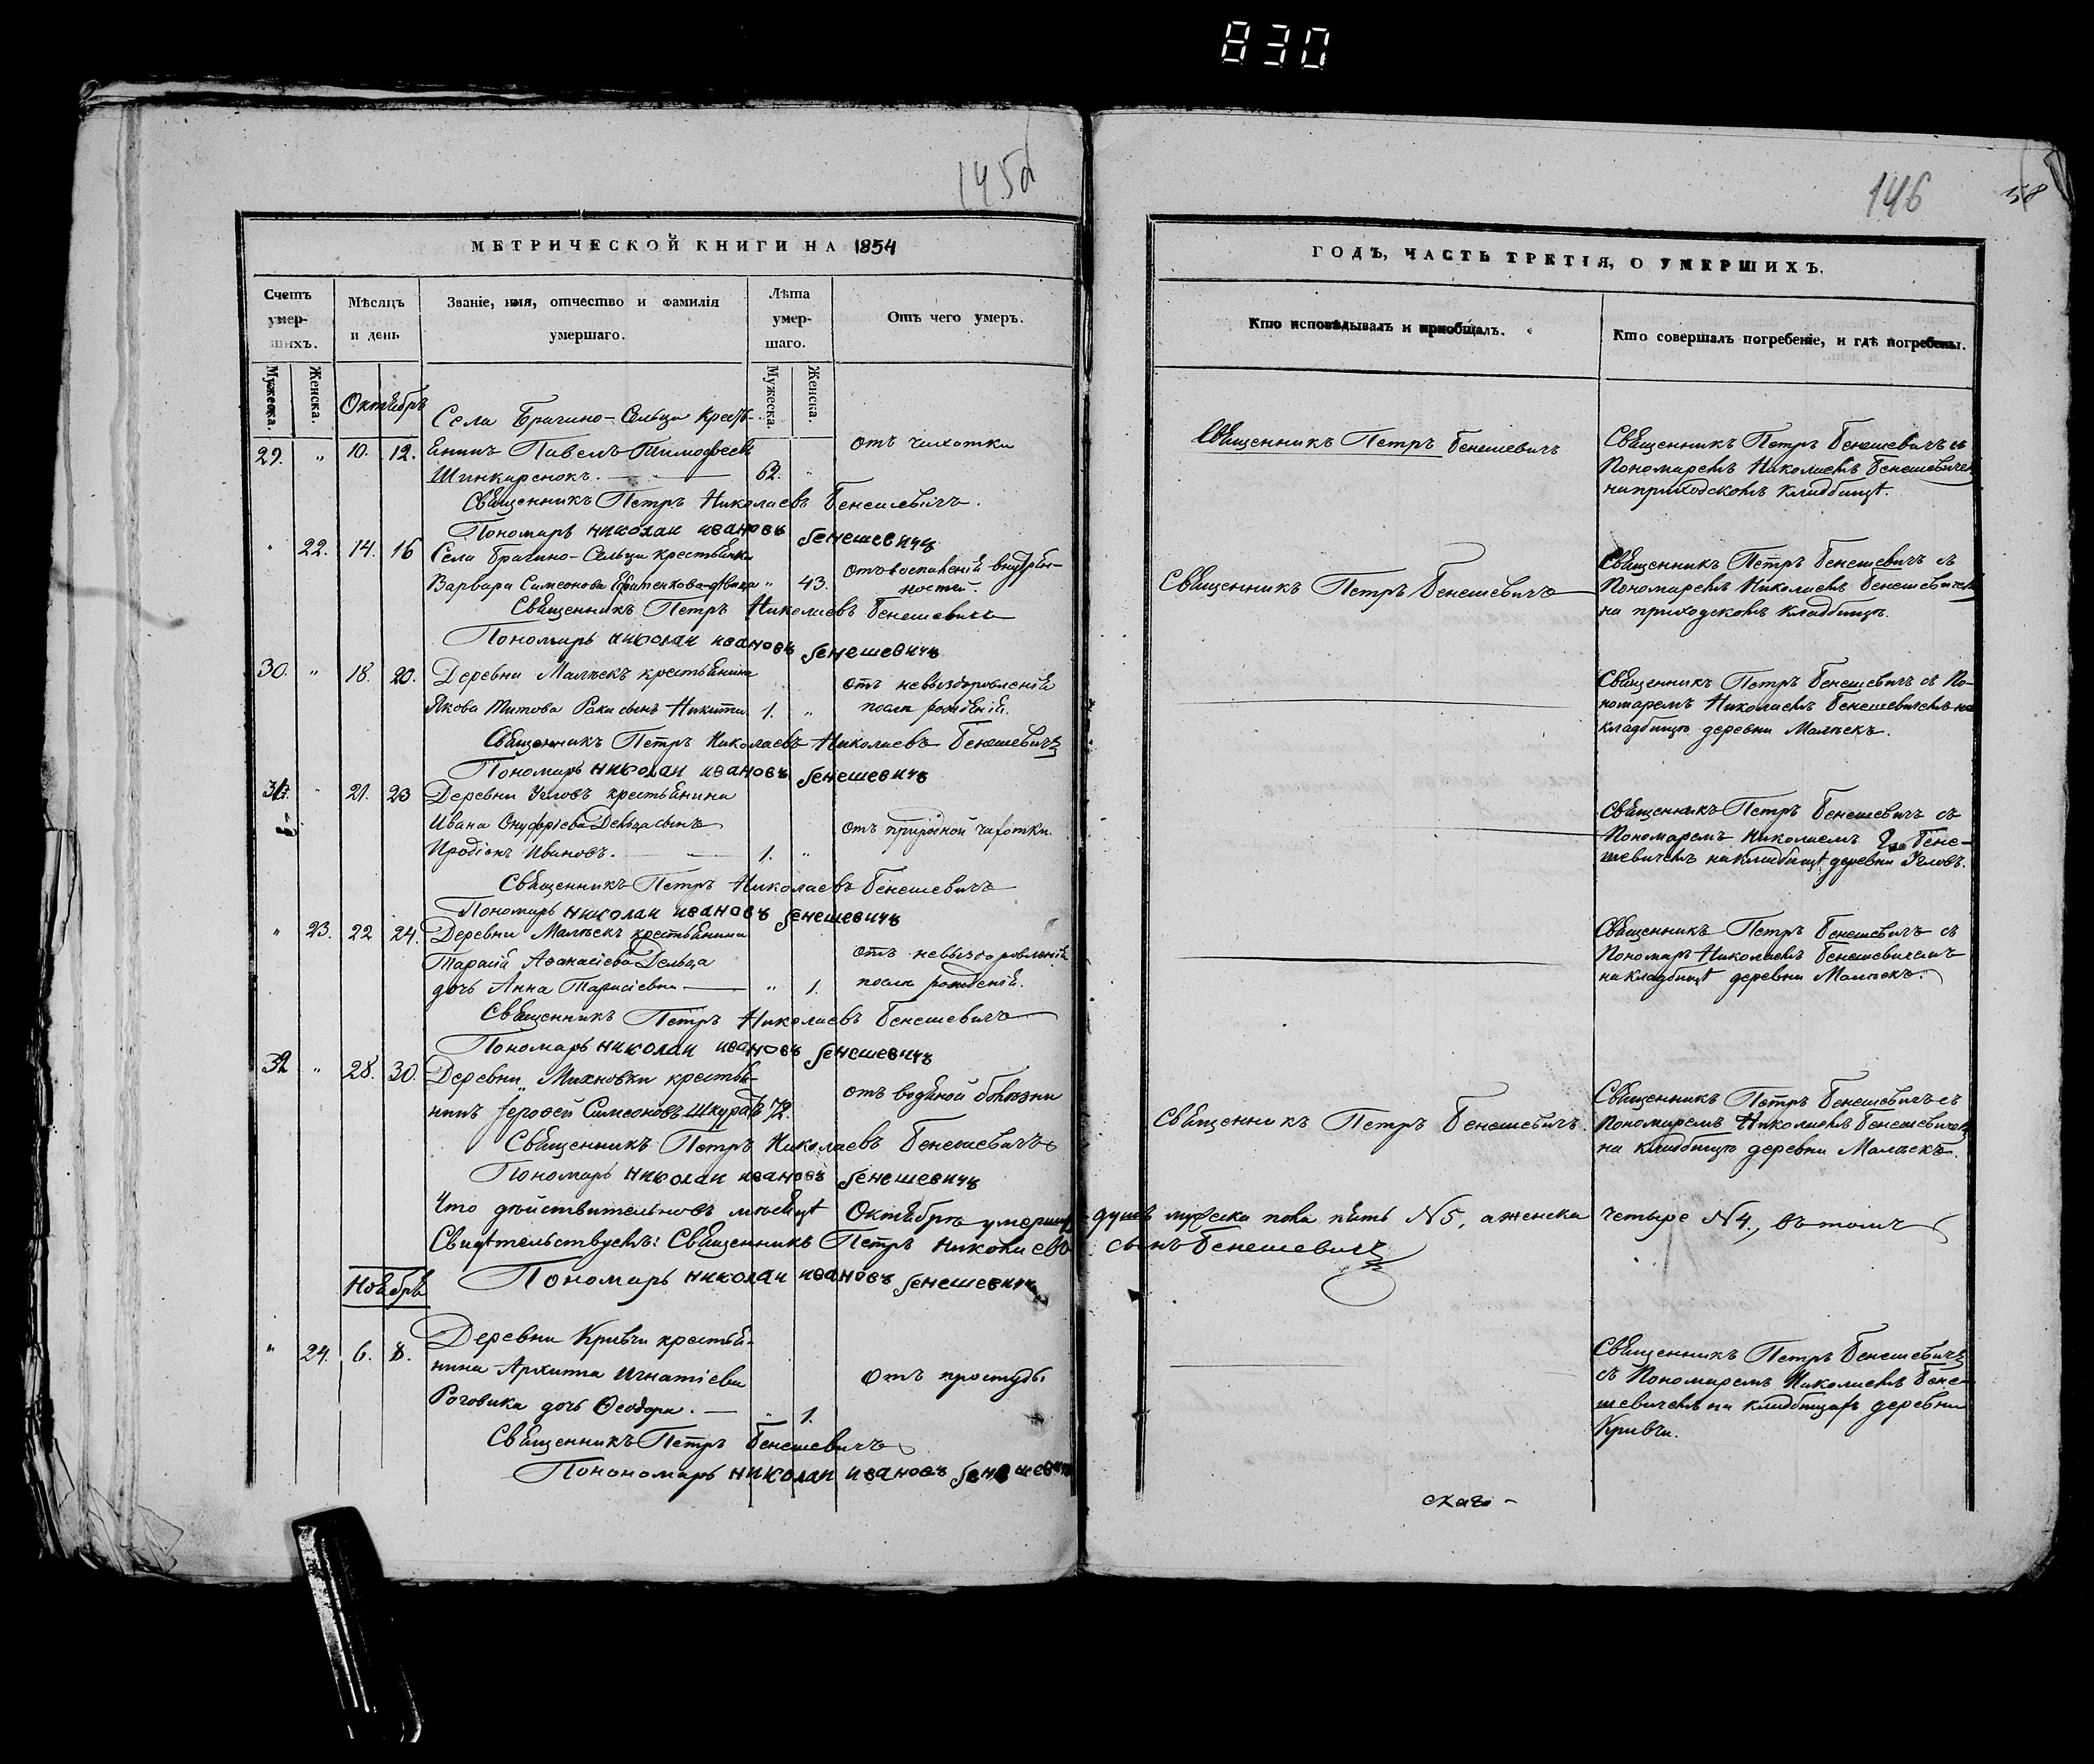 830
145d
146
58
МЕТРИЧЕСКОЙ КНИГИ НА 1854
Счетъ умер-шихъ.
Мѣсяцъ и день
Званіе, имя, отчество и фамилія умершаго.
Лѣта умер-шаго.
Отъ чего умеръ.
Мужеска.
Женска.
Мужеска.
Женска.
Октябрь
Села Брагино-Сельца кресть-
29. " 10. 12. янинъ Павелъ Тимофеевъ отъ чахотки
Шинкаренокъ. 62. "
Священникъ Петръ Николаевъ Бенешевичъ.
Пономарь николаи ивановъ бенешевичъ
" 22. 14. 16 Села Брагино-Сельца крестьянка отъ воспаленія внутрен-
Варвара Симеонова " 43. ностей.
Священникъ Петръ Николаевъ Бенешевичъ
Пономарь николаи ивановъ бенешевичъ
30. " 18. 20. Деревни Малѣекъ крестьянина отъ невыздоровленія
Якова Титова Рака сынъ Никита 1. " послѣ рожденія.
Священникъ Петръ Николаевъ Николаевъ Бенешевичъ
Пономарь николаи ивановъ бенешевичъ
31. " 21. 23 Деревни Угловъ крестьянина
Ивана Онуфріева Дельца сынъ отъ чахотки.
Иродіонъ Ивановъ. 1. "
Священникъ Петръ Николаевъ Бенешевичъ
Пономарь николаи ивановъ бенешевичъ
" 23. 22 24. Деревни Малѣекъ крестьянина
Тарасія Аѳанасіева Дельца отъ невыздоровленія
дочь Анна Тарасіевна " 1. послѣ рожденія.
Священникъ Петръ Николаевъ Бенешевичъ
Пономарь николаи ивановъ бенешевичъ
32 " 28. 30. Деревни Михновки крестья-
нинъ Іероѳей Симеоновъ Шкурат 72. отъ водяной болѣзни
Священникъ Петръ Николаевъ Бенешевичъ
Пономарь николаи ивановъ бенешевичъ
Что дѣйствительно въ мѣсяцѣ Октябрѣ умерших
Свидѣтельствуемъ: Священникъ Петръ Николаевъ
Ноябрь Пономарь николаи ивановъ бенешевичъ
Деревни Кривчи крестья-
" 24. 6. 8. нина Архипа Игнатіева отъ простуды
Роговика дочь Ѳеодора. " 1.
Священникъ Петръ Бенешевичъ
Понономарь николаи ивановъ бенешевичъ
ГОДЪ, ЧАСТЬ ТРЕТІЯ, О УМЕРШИХЪ.
Кто исповѣдывалъ и приобщалъ.
Кто совершалъ погребеніе, и гдѣ погребены.
Священникъ Петръ Бенешевичъ
Священникъ Петръ Бенешевичъ съ
Пономаремъ Николаемъ Бенешевичемъ
на приходскомъ кладбищѣ.
Священникъ Петръ Бенешевичъ
Священникъ Петръ Бенешевичъ съ
Пономаремъ Николаемъ Бенешевичемъ
на приходскомъ кладбищѣ.
Священникъ Петръ Бенешевичъ съ По-
номаремъ Николаемъ Бенешевичемъ на
кладбищѣ деревни Малѣекъ.
Священникъ Петръ Бенешевичъ съ
Пономаремъ Николаемъ Бене-
шевичемъ на кладбищѣ деревни Угловъ.
Священникъ Петръ Бенешевичъ съ
Пономарь Николаемъ Бенешевичемъ
на кладбищѣ деревни Малѣекъ.
Священникъ Петръ Бенешевичъ
Священникъ Петръ Бенешевичъ съ
Пономаремъ Николаемъ Бенешевичемъ
на кладбищѣ деревни Малѣекъ.
душъ мужеска пола пять №5, а женска четыре №4, въ томъ
сынъ Бенешевичъ
Священникъ Петръ Бенешевичъ
съ Пономаремъ Николаемъ Бене-
шевичемъ на кладбищахъ деревни
Кривчи.